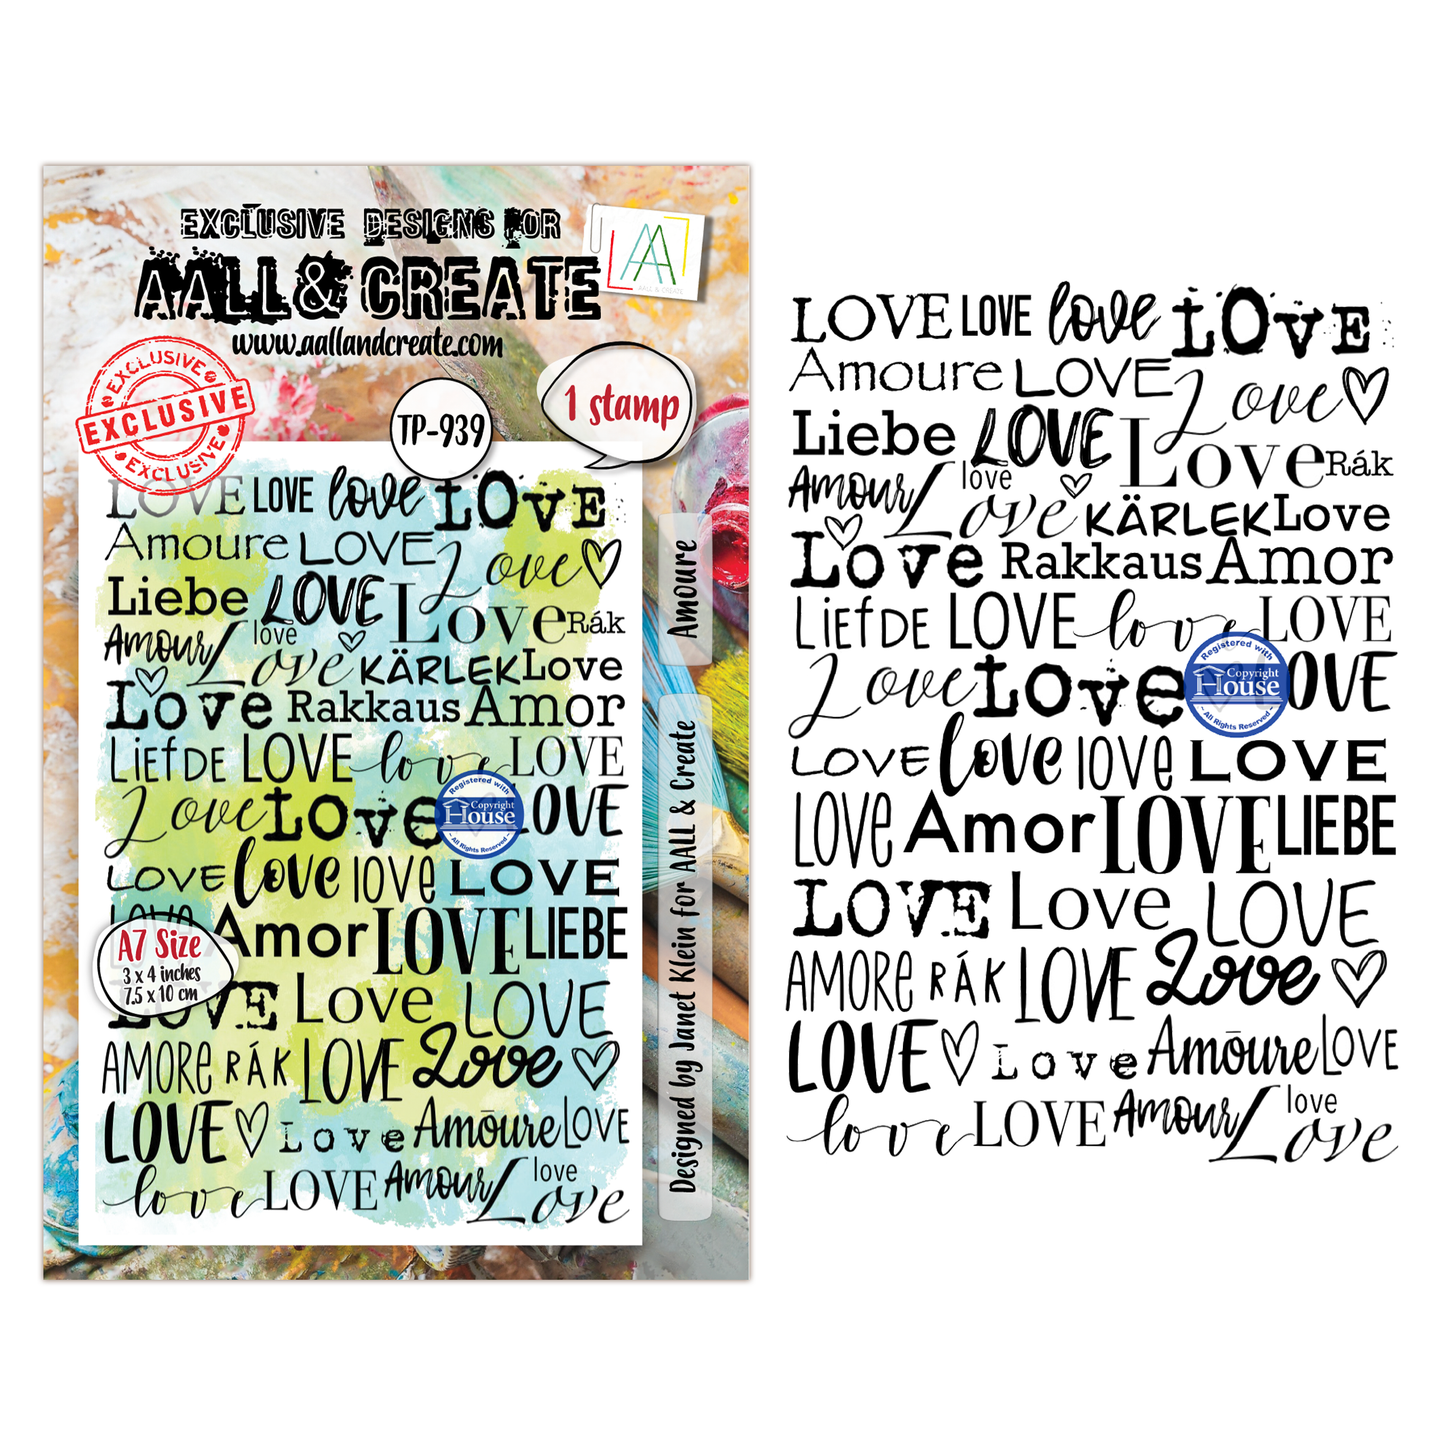 EXCLUSIVE DESIGNS FOR
AALL & CREATE
www.aallandcreate.com
AA
AALL & CREATE
EXCLUSIVE
EXCLUSIVE
EXCLUSIVE
TP-939
1 stamp
LOVE LOVE love LOVE
Amoure LOVE Love
Liebe LOVE Love Rák
Amour Love love KÄRLEK Love
Love Rakkaus Amor
LiefDE LOVE love LOVE
Love Love LOVE
Registered with
Copyright
House
All Rights Reserved
LOVE love love LOVE
LOVE Amor LOVE LIEBE
A7 Size
3 x 4 inches
7.5 x 10 cm
LOVE Love LOVE
AMORE RÁK LOVE Love
LOVE Love Amōure LOVE
love LOVE Amour Love love
Amoure
Designed by Janet Klein for AALL & Create
LOVE LOVE love LOVE
Amoure LOVE Love
Liebe LOVE Love Rák
Amour Love love KÄRLEK Love
Love Rakkaus Amor
LiefDE LOVE love LOVE
Love Love LOVE
Registered with
Copyright
House
All Rights Reserved
LOVE love love LOVE
LOVE Amor LOVE LIEBE
LOVE Love LOVE
AMORE RÁK LOVE Love
LOVE Love Amōure LOVE
love LOVE Amour Love love